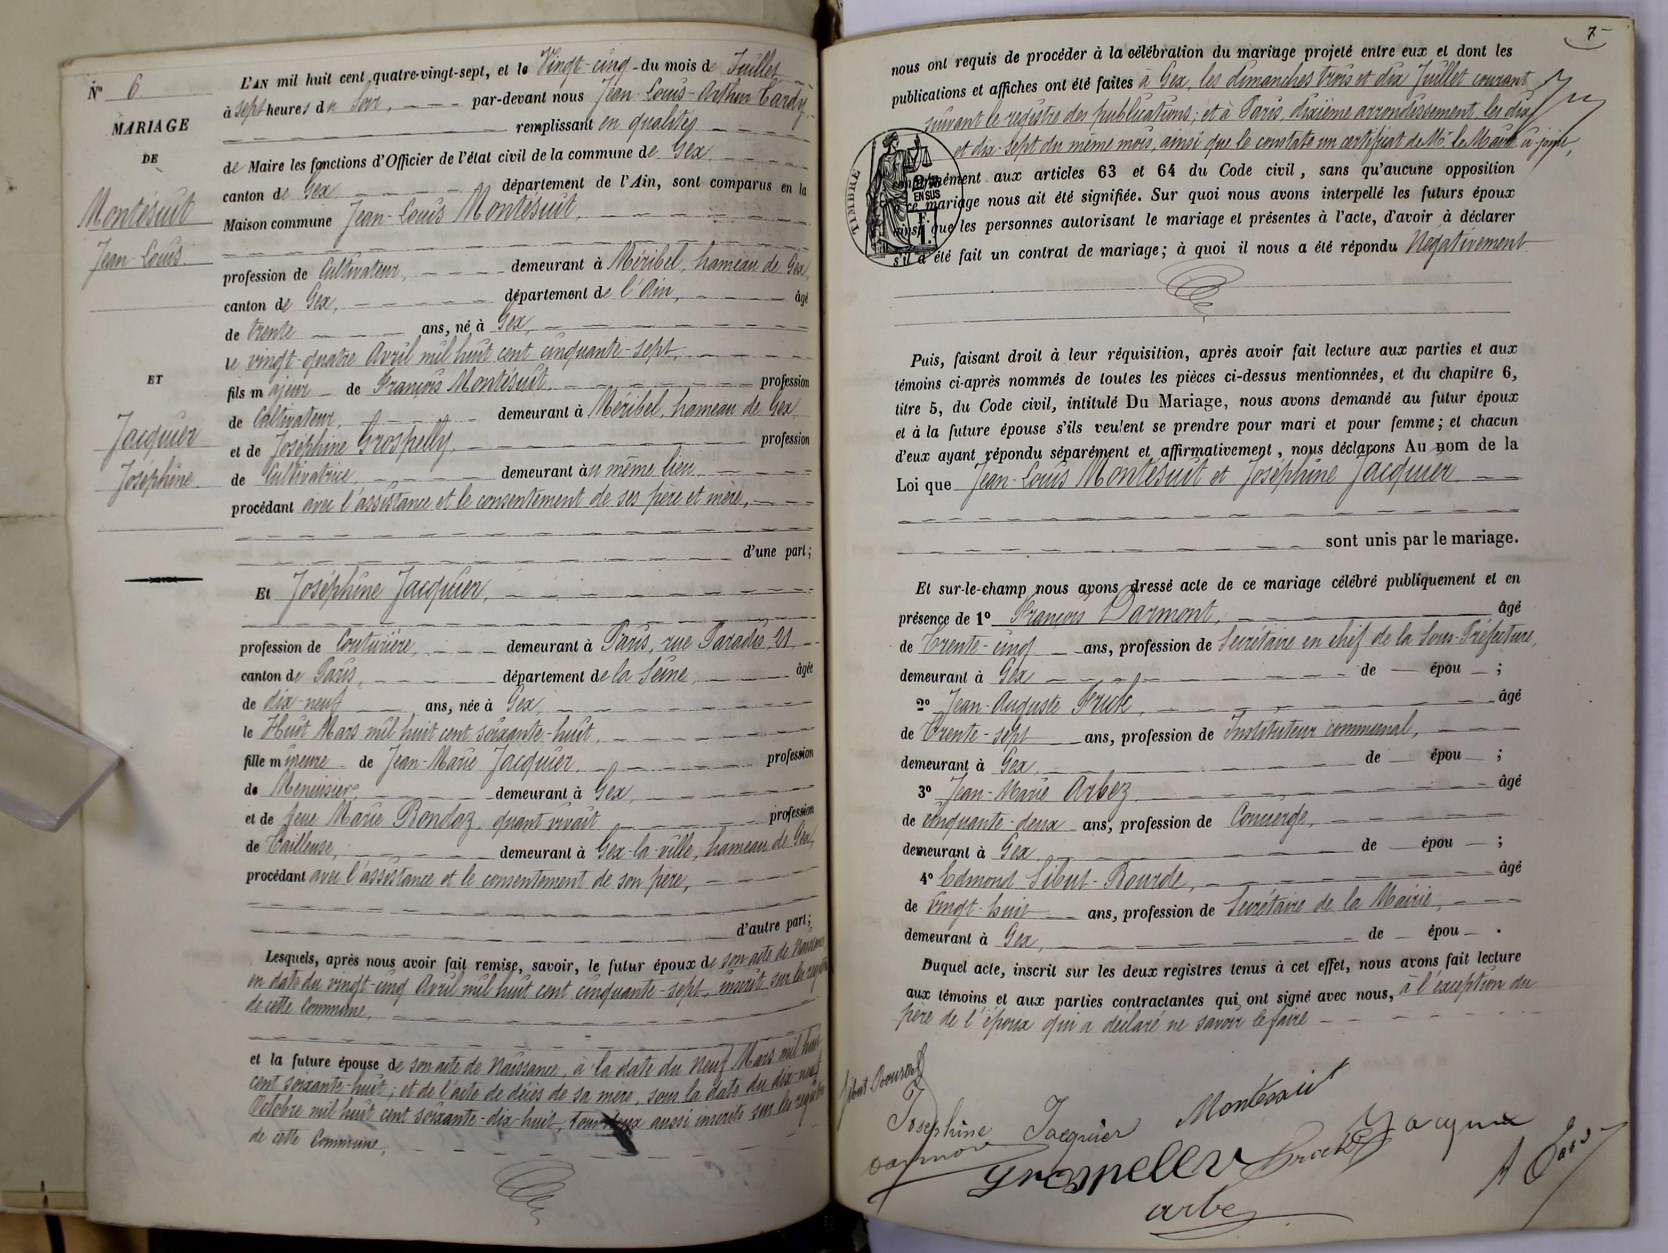 N° 6
MARIAGE
DE
Montésuit
Jean-Louis
ET
Jacquier
Joséphine
L'AN mil huit cent quatre-vingt-sept, et le Vingt-cinq du mois de Juillet
à sept heures du soir, par-devant nous Jean-Louis-Arthur
remplissant en qualités
de Maire les fonctions d'Officier de l'état civil de la commune de Gex
canton de Gex département de l'Ain, sont comparus en la
Maison commune Jean-Louis Montésuit,
profession de Cultivateur, demeurant à Méribel, hameau de Gex,
canton de Gex, département de l'Ain, âgé
de trente ans, né à Gex,
le vingt-quatre Avril mil huit cent cinquante-sept,
fils majeur de François Montésuit, profession
de Cultivateur, demeurant à Méribel, hameau de Gex
et de Joséphine Grospelly, profession
de Cultivatrice, demeurant au même lieu
procédant avec l'assistance et le consentement de ses père et mère,
d'une part;
Et Joséphine Jacquier,
profession de Couturière, demeurant à Paris, rue Paradis 21
canton de Paris, département de la Seine, âgée
de dix-neuf ans, née à Gex,
le Huit Mars mil huit cent soixante-huit,
fille mineure de Jean-Marie Jacquier, profession
de Menuisier, demeurant à Gex,
et de feue Marie Rondaz, quant vivait profession
de Tailleuse, demeurant à Gex-la-ville, hameau de Gex,
procédant avec l'assistance et le consentement de son père,
d'autre part;
Lesquels, après nous avoir fait remise, savoir, le futur époux de son acte de Naissance
en date du vingt-cinq Avril mil huit cent cinquante-sept, inscrit sur les registres
de cette Commune,
et la future épouse de son acte de Naissance, à la date du Neuf Mars mil huit
cent soixante-huit; et de l'acte de décès de sa mère, sous la date du dix-neuf
Octobre mil huit cent soixante-dix-huit, tous deux aussi inscrits sur les registres
de cette Commune,
7
nous ont requis de procéder à la célébration du mariage projeté entre eux et dont les
publications et affiches ont été faites à Gex, les dimanches trois et dix Juillet courant
suivant le registre des publications; et à Paris, dixième arrondissement, les dix
et dix-sept du même mois, ainsi que le constate un certificat de Mr le Maire ci-joint,
conformément aux articles 63 et 64 du Code civil, sans qu'aucune opposition
à ce mariage nous ait été signifiée. Sur quoi nous avons interpellé les futurs époux
ainsi que les personnes autorisant le mariage et présentes à l'acte, d'avoir à déclarer
s'il a été fait un contrat de mariage; à quoi il nous a été répondu Négativement
TIMBRE
EN SUS
Puis, faisant droit à leur réquisition, après avoir fait lecture aux parties et aux
témoins ci-après nommés de toutes les pièces ci-dessus mentionnées, et du chapitre 6,
titre 5, du Code civil, intitulé Du Mariage, nous avons demandé au futur époux
et à la future épouse s'ils veulent se prendre pour mari et pour femme; et chacun
d'eux ayant répondu séparément et affirmativement, nous déclarons Au nom de la
Loi que Jean-Louis Montésuit et Joséphine Jacquier
sont unis par le mariage.
Et sur-le-champ nous avons dressé acte de ce mariage célébré publiquement et en
présence de 1° François Darmont, âgé
de Trente-cinq ans, profession de Secrétaire en chef de la Sous-Préfecture,
demeurant à Gex de épou ;
2° Jean-Auguste âgé
de Trente-sept ans, profession de Instituteur communal,
demeurant à Gex de épou ;
3° Jean-Marie Arbez âgé
de cinquante-deux ans, profession de Concierge,
demeurant à Gex, de épou ;
4° Edmond Sibut-Bourde, âgé
de vingt-huit ans, profession de Secrétaire de la Mairie,
demeurant à Gex, de épou .
Duquel acte, inscrit sur les deux registres tenus à cet effet, nous avons fait lecture
aux témoins et aux parties contractantes qui ont signé avec nous, à l'exception du
père de l'époux qui a déclaré ne savoir le faire
Sibut Bourde
Josephine Jacquier Montesuit
Darmont Grospelley Jacquier
Arbez